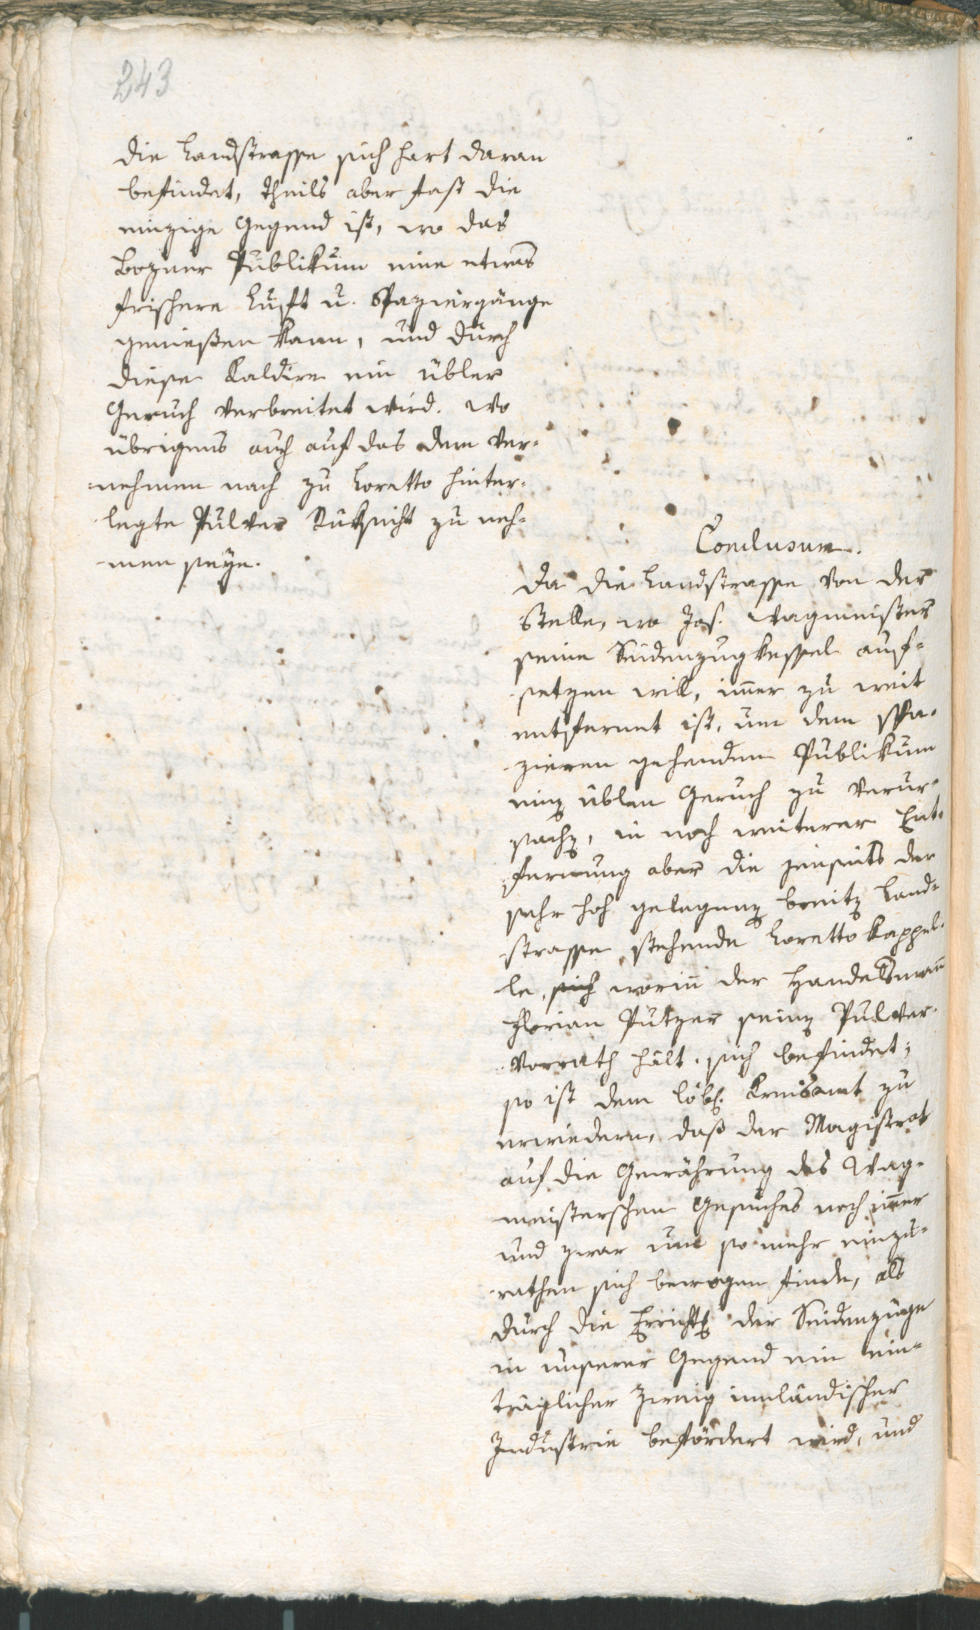 243
die Landstrasse sich hart daran
befindet, theils aber fast die
einzige Gegend ist, wo das
Bozner Publikum eine etwas
frischere Luft u. Spaziergänge
genießen kann, und durch
diese Kaldire ein übler
Geruch verbreitet wird. Wo
übrigens auch auf das dem Ver-
nehmen nach zu Loretto hinter-
legte Pulver Rüksicht zu neh-
men seÿe.
Conclusum.
Da die Landstrasse von der
Stelle, wo Jos. Wagmeister
seine Seidenzugkessel auf-
setzen will, imer zu weit
entfernet ist, um dem spa-
zieren gehenden Publikum
einen üblen Geruch zu verur-
sachen, in noch weiterer Ent-
fernung aber die jenseits der
sehr hoch gelegenen breiten Land-
strasse stehende Loretto kappel-
le, sich worin der Handelsmann
Florian Putzer seinen Pulver-
Vorrath hält, sich befindet;
so ist dem löbl. Kreisamt zu
erwiedern, daß der Magistrat
auf die Gewährung des Wag-
meisterschen Gesuches noch imer
und zwar um so mehr einzu-
rathen sich bewogen finde, als
durch die Errichtg der Seidenzüge
in unserer Gegend ein ein-
träglicher Zweig innländischer
Industrie befördert wird, und